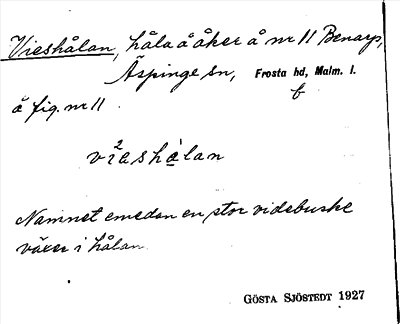 Vieshålan, håla å åker å nr 11 Benarp,
Äspinge sn, Frosta hd, Malm. l.
f
å fig. nr 11.
vi²ashålan
Namnet emedan en stor videbuske
växer i hålan.
GÖSTA SJÖSTEDT 1927